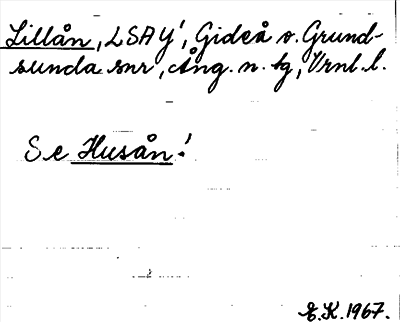 Lillån, LSAY!, Gideå o. Grund-
sunda snr, Ång. n. tg, Vrnl. l.
Se Husån!
E.K. 1967.